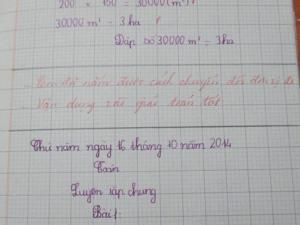 200 × 150 = 30000 (m²)
30000 m² = 3 ha
Đáp số 30000 m² = 3 ha
- Em đã nắm được cách chuyển đổi đơn vị đo
- Vận dụng vào giải toán tốt
Thứ năm ngày 16 tháng 10 năm 2014
Toán
Luyện tập chung
Bài 1